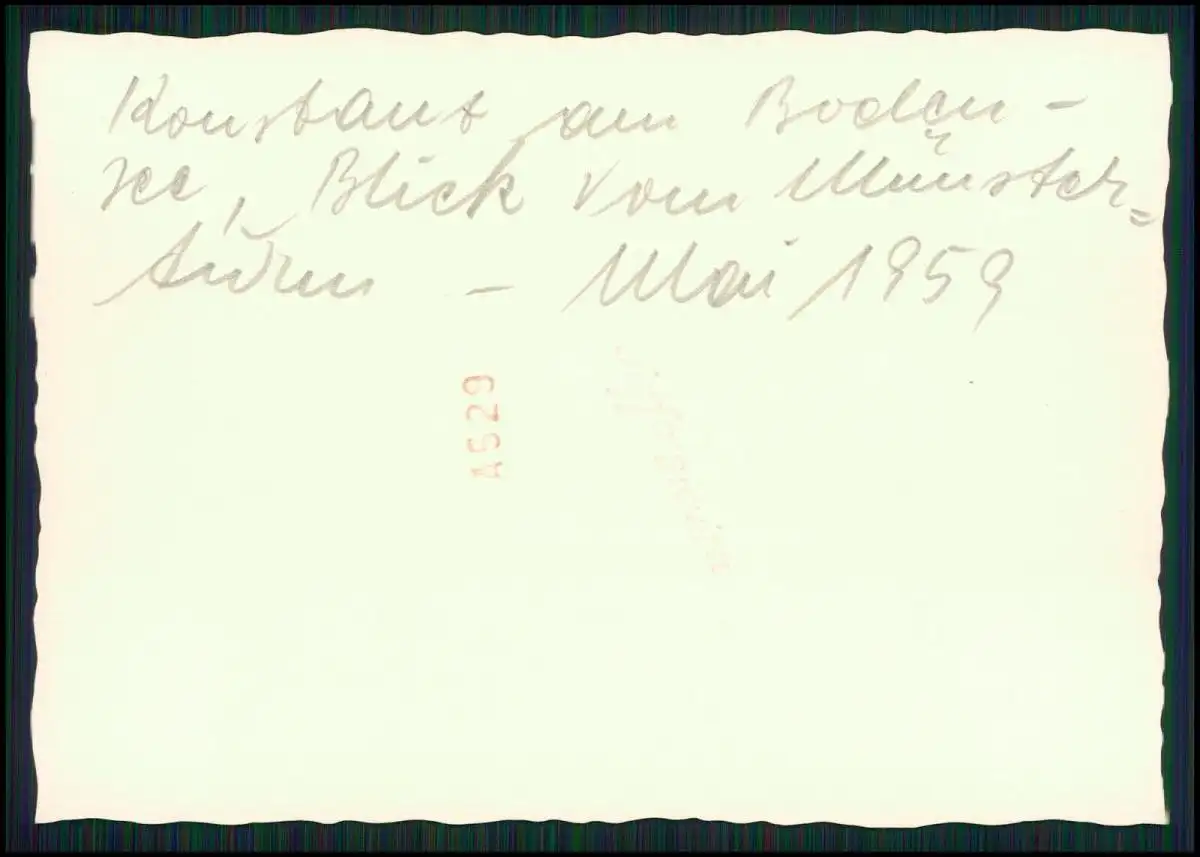 Konstanz am Boden-
see, Blick vom Münster=
turm - Mai 1959
A529